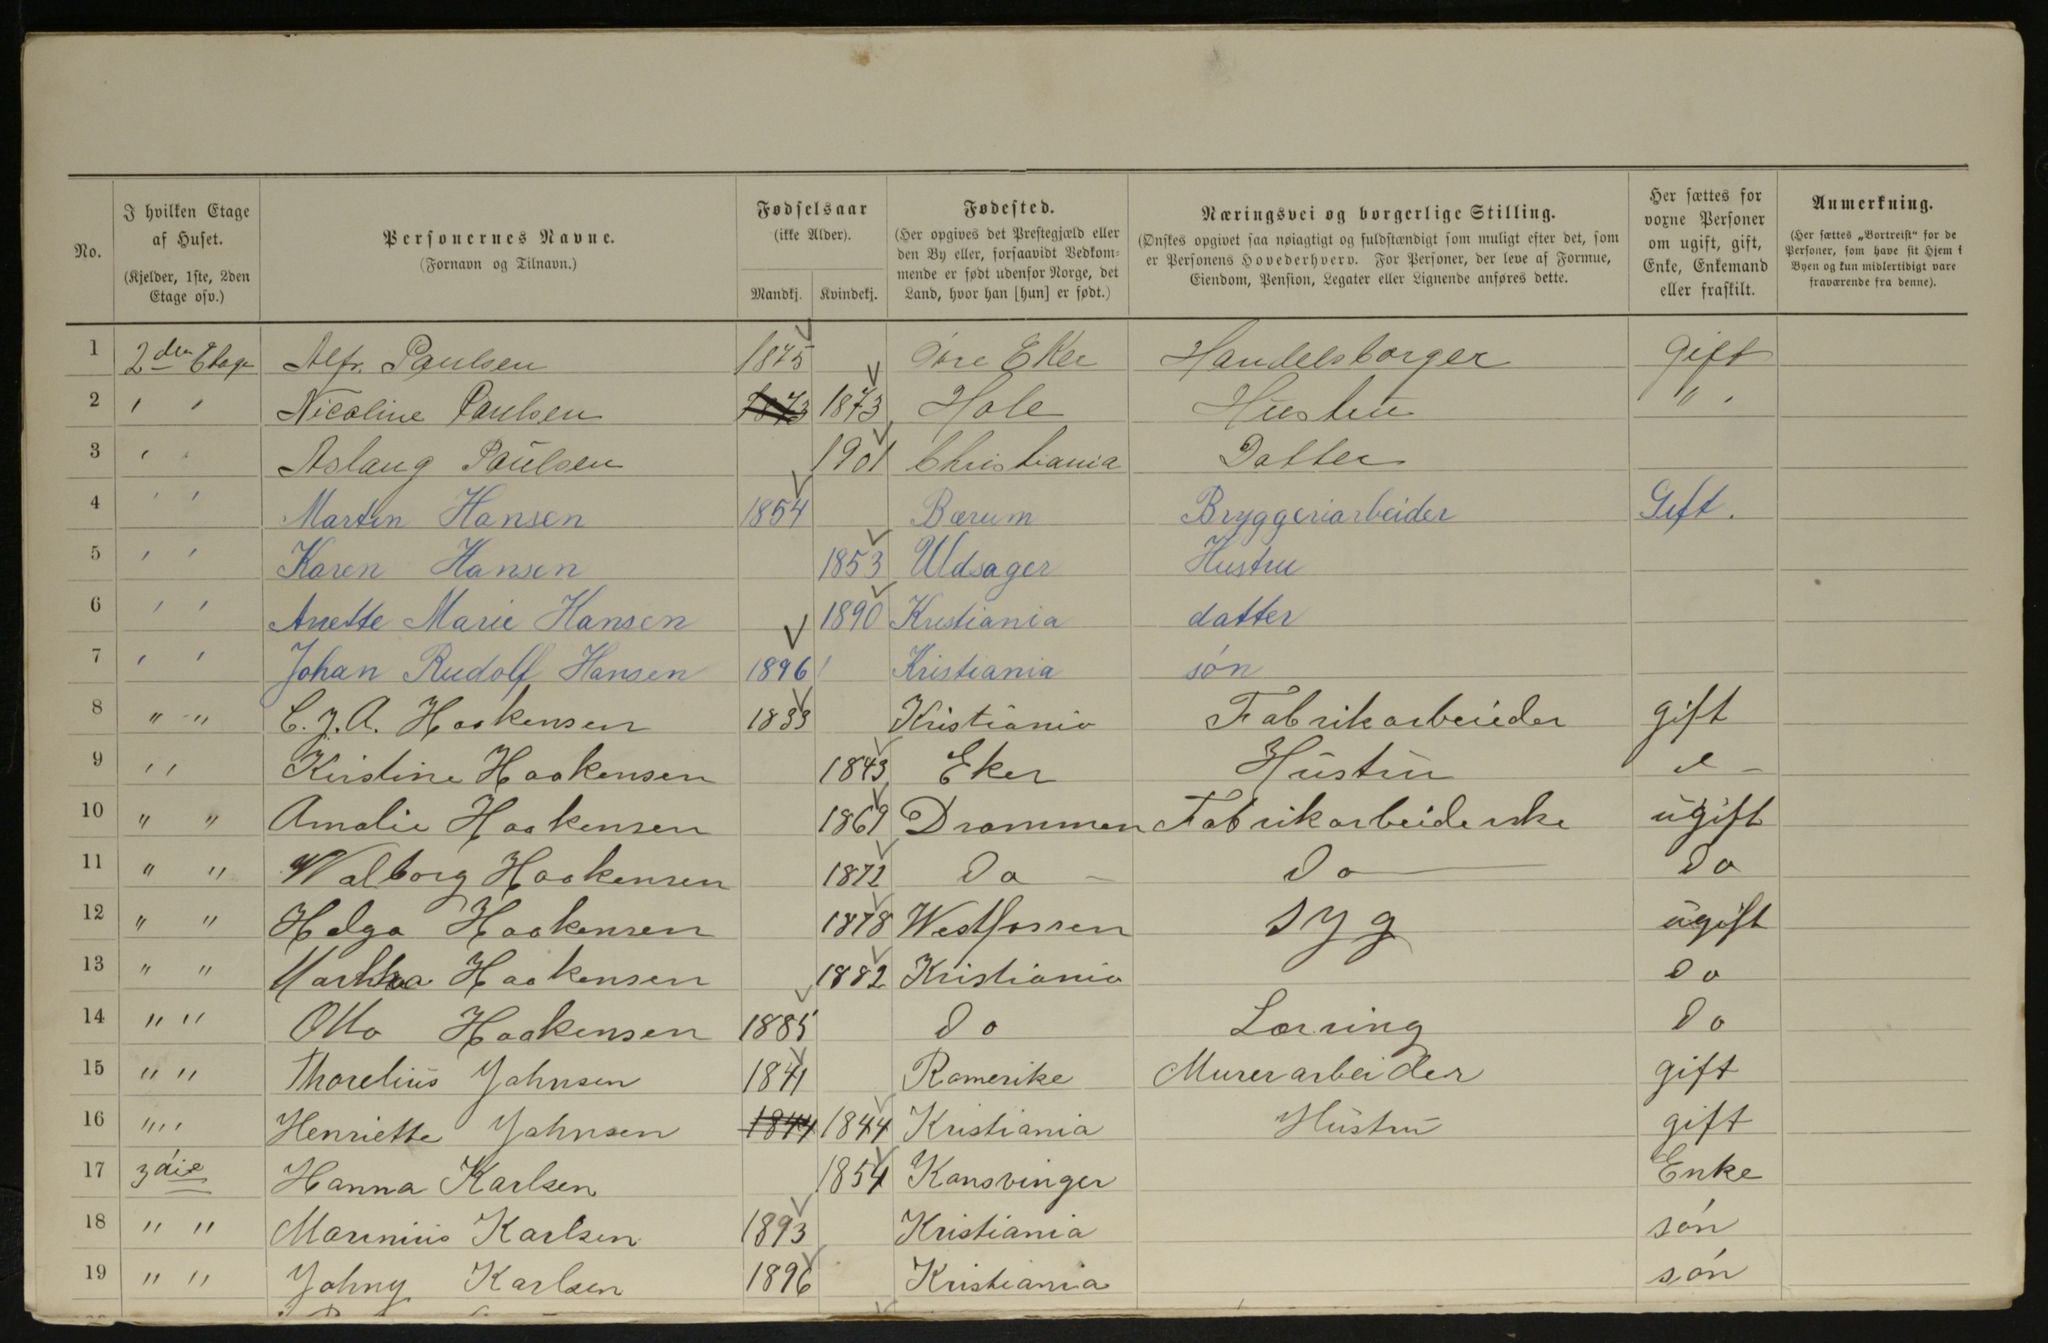 No.
I hvilken Etage af Huset. (Kjelder, 1ste, 2den Etage osv.)
Personernes Navne. (Fornavn og Tilnavn.)
Fødselsaar (ikke Alder). Mandkj. Kvindekj.
Fødested. (Her opgives det Prestegjæld eller den By eller, forsaavidt Vedkommende er født udenfor Norge, det Land, hvor han [hun] er født.)
Næringsvei og borgerlige Stilling. (Ønskes opgivet saa nøiagtigt og fuldstændigt som muligt efter det, som er Personens Hovederhverv. For Personer, der leve af Formue, Eiendom, Pension, Legater eller Lignende anføres dette.
Her sættes for voxne Personer om ugift, gift, Enke, Enkemand eller fraskilt.
Anmerkning. (Her sættes „Bortreist“ for de Personer, som have sit Hjem i Byen og kun midlertidigt vare fraværende fra denne).
1 2den Etage Alfr. Paulsen 1875 Øvre Eker Handelsborger gift
2 " " Nicoline Paulsen 1873 1873 Hole Hustru " "
3 " " Aslaug Paulsen 1901 Christiania Datter
4 " " Martin Hansen 1854 Bærum Bryggeriarbeider Gift.
5 " " Karen Hansen 1853 Udsager Hustru
6 " " Anette Marie Hansen 1890 Kristiania datter
7 " " Johan Rudolf Hansen 1896 Kristiania søn
8 " " C. J. A. Haakensen 1833 Kristiania Fabrikarbeider gift
9 " " Kristine Haakensen 1843 Eker Hustru
10 " " Amalie Haakensen 1869 Drammen Fabrikarbeiderske ugift
11 " " Walborg Haakensen 1872 Do Do Do
12 " " Helga Haakensen 1878 Westfossen syg ugift
13 " " Martha Haakensen 1882 Kristiania Do
14 " " Otto Haakensen 1885 Do Lærring Do
15 " " Thorelius Johnsen 1841 Romerike Murerarbeider gift
16 " " Henriette Johnsen 1844 1844 Kristiania Hustru gift
17 3die Hanna Karlsen 1854 Konsvinger Enke
18 " " Marinius Karlsen 1893 Kristiania søn
19 " " Johny Karlsen 1896 Kristiania søn